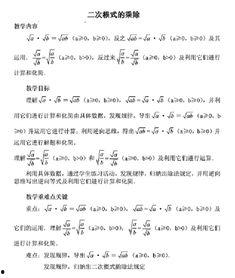 二次根式的乘除
教学内容
√a · √b = √ab (a≥0, b≥0), 反之 √ab = √a · √b (a≥0, b≥0) 及其
运用. √a/√b = √(a/b) (a≥0, b>0), 反过来 √(a/b) = √a/√b (a≥0, b>0) 及利用它们进行
计算和化简.
教学目标
理解 √a · √b = √ab (a≥0, b≥0), √ab = √a · √b (a≥0, b≥0), 并利
用它们进行计算和化简由具体数据, 发现规律, 导出 √a · √b = √ab (a≥0, b
≥0) 并运用它进行计算, 利用逆向思维, 得出 √ab = √a · √b (a≥0, b≥0) 并
运用它进行解题和化简.
理解 √a/√b = √(a/b) (a≥0, b>0) 和 √(a/b) = √a/√b (a≥0, b>0) 及利用它们进行运算.
利用具体数据, 通过学生练习活动, 发现规律, 归纳出除法规定, 并用逆向
思维写出逆向等式及利用它们进行计算和化简.
教学重难点关键
重点: √a · √b = √ab (a≥0, b≥0), √ab = √a · √b (a≥0, b≥0) 及
它们的运用. 理解 √a/√b = √(a/b) (a≥0, b>0), √(a/b) = √a/√b (a≥0, b>0) 及利用它们
进行计算和化简.
难点: 发现规律, 导出 √a · √b = √ab (a≥0, b≥0).
发现规律, 归纳出二次根式的除法规定